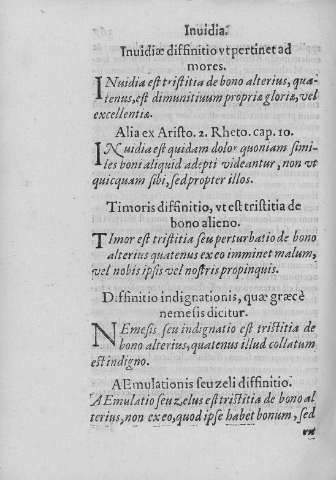 Inuidia.
Inuidiæ diffinitio vt pertinet ad
mores.
INuidia est tristitia de bono alterius, qua-
tenus, est dimunitiuum propriæ gloriæ, vel
excellentiæ.
Alia ex Aristo. 2. Rheto. cap. 10.
INuidia est quidam dolor quoniam simi-
les boni aliquid adepti videantur, non vt
quicquam sibi, sed propter illos.
Timoris diffinitio, vt est tristitia de
bono alieno.
TImor est tristitia seu perturbatio de bono
alterius quatenus ex eo imminet malum,
vel nobis ipsis vel nostris propinquis.
Diffinitio indignationis, quæ græcè
nemesis dicitur.
NEmesis seu indignatio est tristitia de
bono alterius, quatenus illud collatum
est indigno.
AEmulationis seu zeli diffinitio.
AEmulatio seu zelus est tristitia de bono al
terius, non ex eo, quod ipse habet bonum, sed